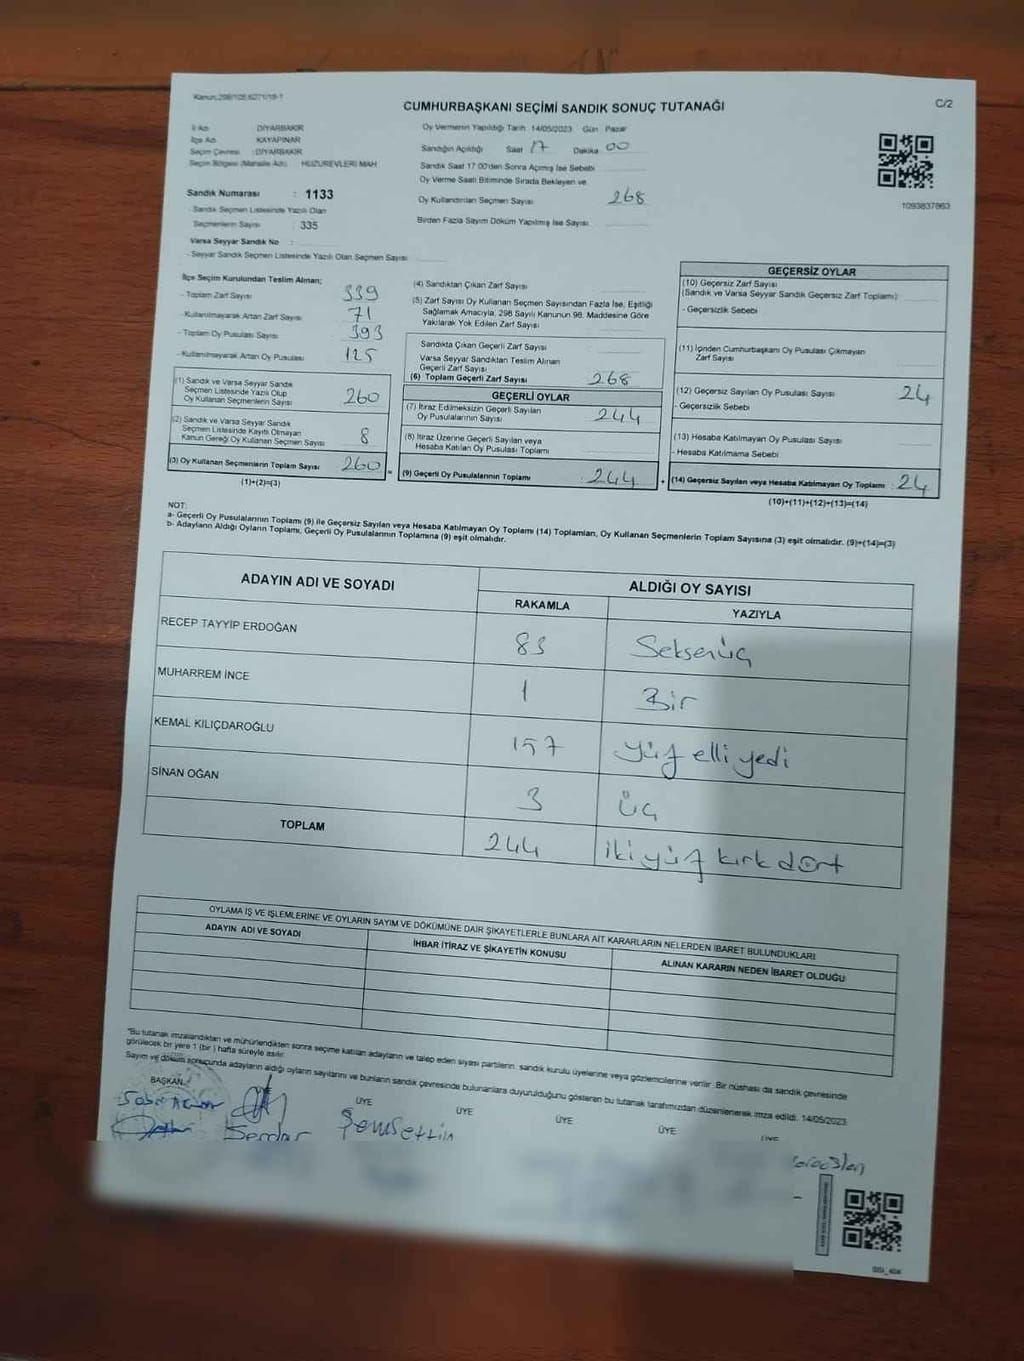 Kanun,298/105;6271/18-1
CUMHURBAŞKANI SEÇİMİ SANDIK SONUÇ TUTANAĞI
C/2
İl Adı : DİYARBAKIR
İlçe Adı : KAYAPINAR
Seçim Çevresi : DİYARBAKIR
Seçim Bölgesi (Mahalle Adı) : HUZUREVLERİ MAH
Oy Vermenin Yapıldığı Tarih 14/05/2023 Gün Pazar
Sandığın Açıldığı Saat 17 Dakika 00
Sandık Saat 17.00'den Sonra Açılmış İse Sebebi
Oy Verme Saati Bitiminde Sırada Bekleyen ve
Oy Kullandırılan Seçmen Sayısı 268
Birden Fazla Sayım Döküm Yapılmış İse Sayısı
1093837863
Sandık Numarası : 1133
- Sandık Seçmen Listesinde Yazılı Olan
Seçmenlerin Sayısı : 335
Varsa Seyyar Sandık No :
- Seyyar Sandık Seçmen Listesinde Yazılı Olan Seçmen Sayısı
İlçe Seçim Kurulundan Teslim Alınan;
- Toplam Zarf Sayısı 339
- Kullanılmayarak Artan Zarf Sayısı 71
- Toplam Oy Pusulası Sayısı 393
- Kullanılmayarak Artan Oy Pusulası 125
(1) Sandık ve Varsa Seyyar Sandık
Seçmen Listesinde Yazılı Olup
Oy Kullanan Seçmenlerin Sayısı 260
(2) Sandık ve Varsa Seyyar Sandık
Seçmen Listesinde Kayıtlı Olmayan
Kanun Gereği Oy Kullanan Seçmen Sayısı 8
(3) Oy Kullanan Seçmenlerin Toplam Sayısı 260
(1)+(2)=(3)
(4) Sandıktan Çıkan Zarf Sayısı
(5) Zarf Sayısı Oy Kullanan Seçmen Sayısından Fazla İse, Eşitliği
Sağlamak Amacıyla, 298 Sayılı Kanunun 98. Maddesine Göre
Yakılarak Yok Edilen Zarf Sayısı
Sandıkta Çıkan Geçerli Zarf Sayısı
Varsa Seyyar Sandıktan Teslim Alınan
Geçerli Zarf Sayısı
(6) Toplam Geçerli Zarf Sayısı 268
GEÇERLİ OYLAR
(7) İtiraz Edilmeksizin Geçerli Sayılan
Oy Pusulalarının Sayısı 244
(8) İtiraz Üzerine Geçerli Sayılan veya
Hesaba Katılan Oy Pusulası Toplamı
= (9) Geçerli Oy Pusulalarının Toplamı : 244
GEÇERSİZ OYLAR
(10) Geçersiz Zarf Sayısı
(Sandık ve Varsa Seyyar Sandık Geçersiz Zarf Toplamı)
- Geçersizlik Sebebi
(11) İçinden Cumhurbaşkanı Oy Pusulası Çıkmayan
Zarf Sayısı
(12) Geçersiz Sayılan Oy Pusulası Sayısı 24
- Geçersizlik Sebebi
(13) Hesaba Katılmayan Oy Pusulası Sayısı
- Hesaba Katılmama Sebebi
+ (14) Geçersiz Sayılan veya Hesaba Katılmayan Oy Toplamı : 24
(10)+(11)+(12)+(13)=(14)
NOT:
a- Geçerli Oy Pusulalarının Toplamı (9) ile Geçersiz Sayılan veya Hesaba Katılmayan Oy Toplamı (14) Toplamları, Oy Kullanan Seçmenlerin Toplam Sayısına (3) eşit olmalıdır. (9)+(14)=(3)
b- Adayların Aldığı Oyların Toplamı, Geçerli Oy Pusulalarının Toplamına (9) eşit olmalıdır.
ADAYIN ADI VE SOYADI
ALDIĞI OY SAYISI
RAKAMLA YAZIYLA
RECEP TAYYİP ERDOĞAN 83 Seksenüç
MUHARREM İNCE 1 Bir
KEMAL KILIÇDAROĞLU 157 yüz elli yedi
SİNAN OĞAN 3 üç
TOPLAM 244 iki yüz kırk dört
OYLAMA İŞ VE İŞLEMLERİNE VE OYLARIN SAYIM VE DÖKÜMÜNE DAİR ŞİKAYETLERLE BUNLARA AİT KARARLARIN NELERDEN İBARET BULUNDUKLARI
ADAYIN ADI VE SOYADI
İHBAR İTİRAZ VE ŞİKAYETİN KONUSU
ALINAN KARARIN NEDEN İBARET OLDUĞU
"Bu tutanak imzalandıktan ve mühürlendikten sonra seçime katılan adayların ve talep eden siyasi partilerin, sandık kurulu üyelerine veya gözlemcilerine verilir. Bir nüshası da sandık çevresinde
görülecek bir yere 1 (bir) hafta süreyle asılır.
Sayım ve döküm sonucunda adayların aldığı oyların sayılarını ve bunların sandık çevresinde bulunanlara duyurulduğunu gösteren bu tutanak tarafımızdan düzenlenerek imza edildi. 14/05/2023
BAŞKAN
ÜYE
ÜYE
ÜYE
ÜYE
ÜYE
Serdar
Şemsettin